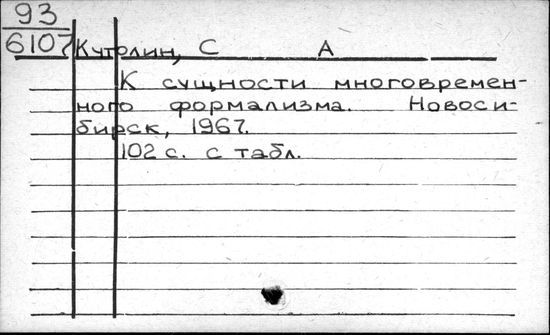 93
6107
Кутолин, С А
К сущности многовремен-
ного формализма. Новоси-
бирск, 1967.
102 с. с табл.